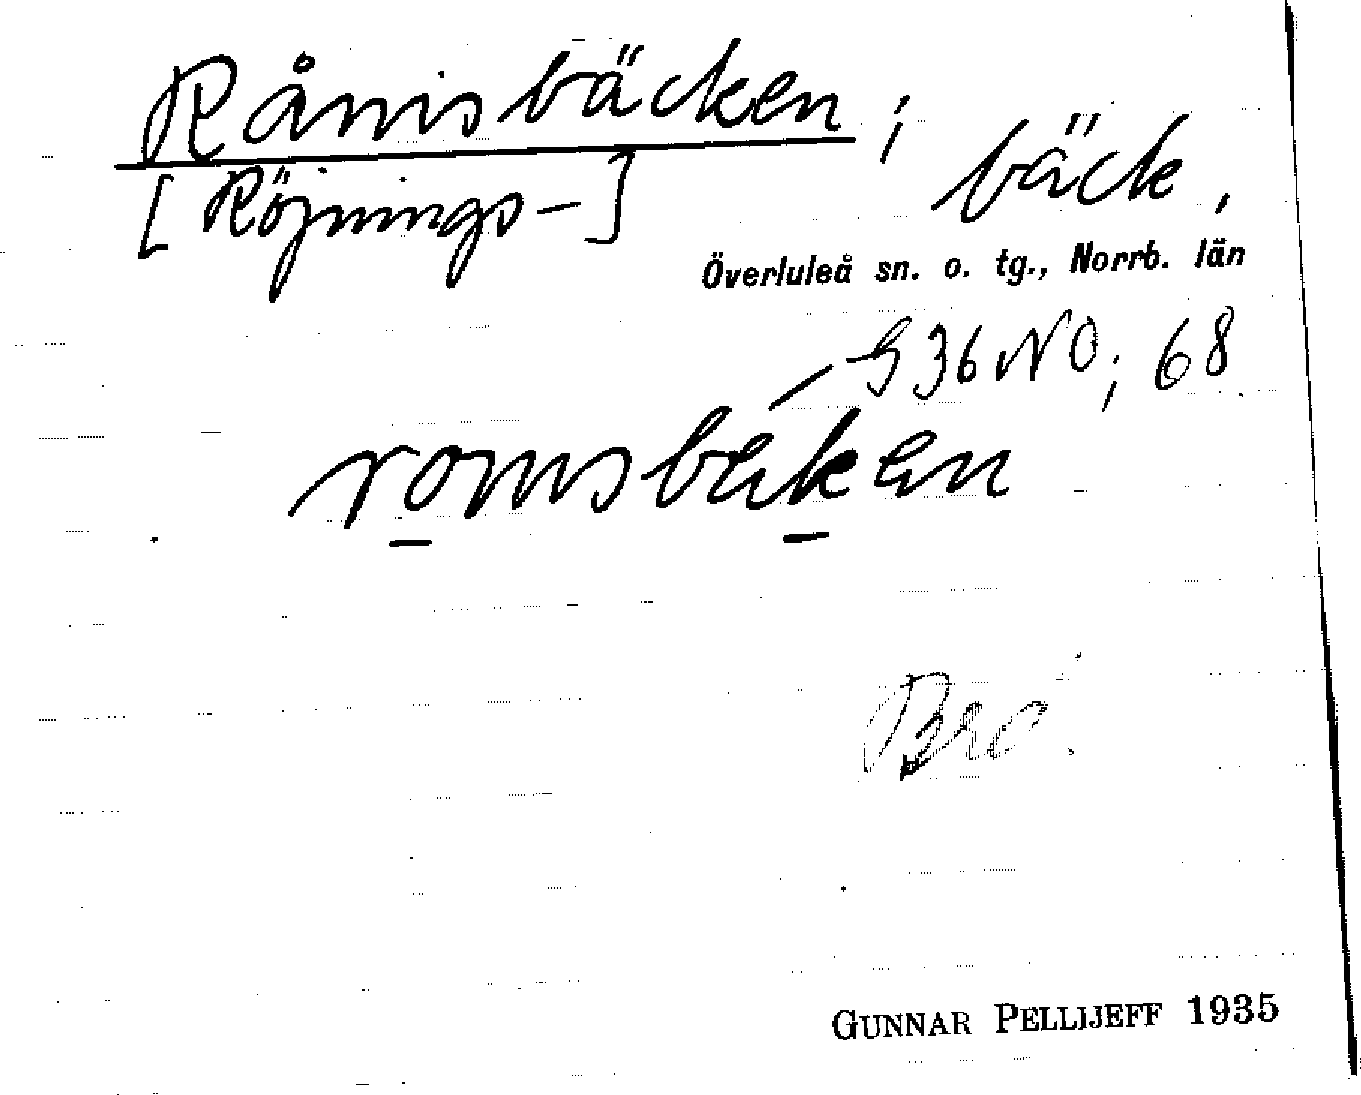 Rånisbäcken; bäck,
[Röjnings-]
Överluleå sn. o. tg., Norrb. län
G36NO; 68
romsbäken
Bro.
GUNNAR PELLIJEFF 1935